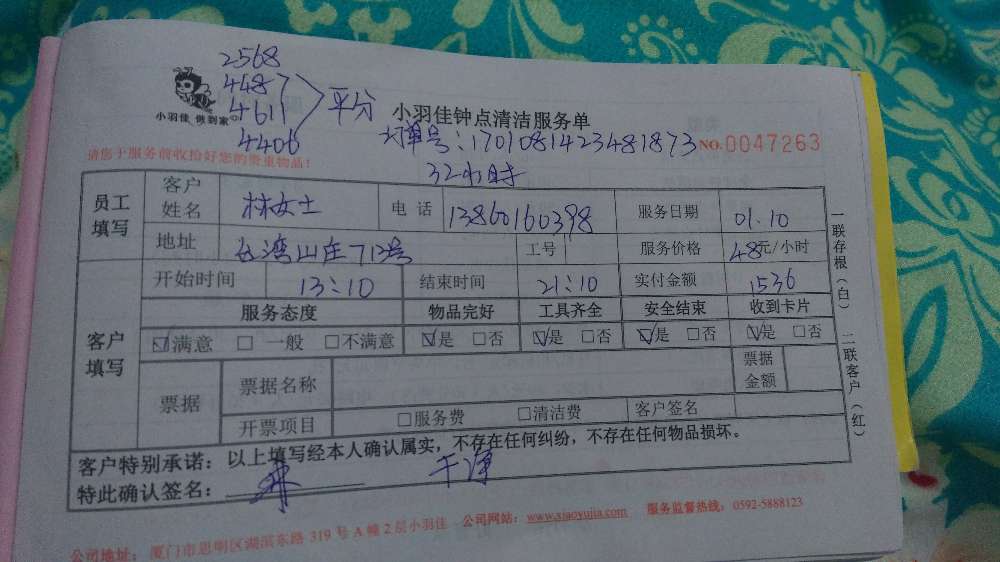 2568
4487
4611
4406
平分
小羽佳 做到家
小羽佳钟点清洁服务单
订单号:1701081423481873
NO.0047263
请您于服务前收拾好您的贵重物品!
32小时
员工填写 客户姓名 林女士 电话 13860160398 服务日期 01.10
地址 长湾山庄713号 工号 服务价格 48元/小时
客户填写 开始时间 13:10 结束时间 21:10 实付金额 1536
服务态度 物品完好 工具齐全 安全结束 收到卡片
☑满意 □一般 □不满意 ☑是 □否 ☑是 □否 ☑是 □否 ☑是 □否
票据 票据名称 票据金额
开票项目 □服务费 □清洁费 客户签名
客户特别承诺:以上填写经本人确认属实,不存在任何纠纷,不存在任何物品损坏。
特此确认签名: 干净
一联存根(白) 二联客户(红)
公司地址:厦门市思明区湖滨东路 319 号 A 幢 2 层小羽佳 公司网站:www.xiaoyujia.com 服务监督热线:0592-5888123